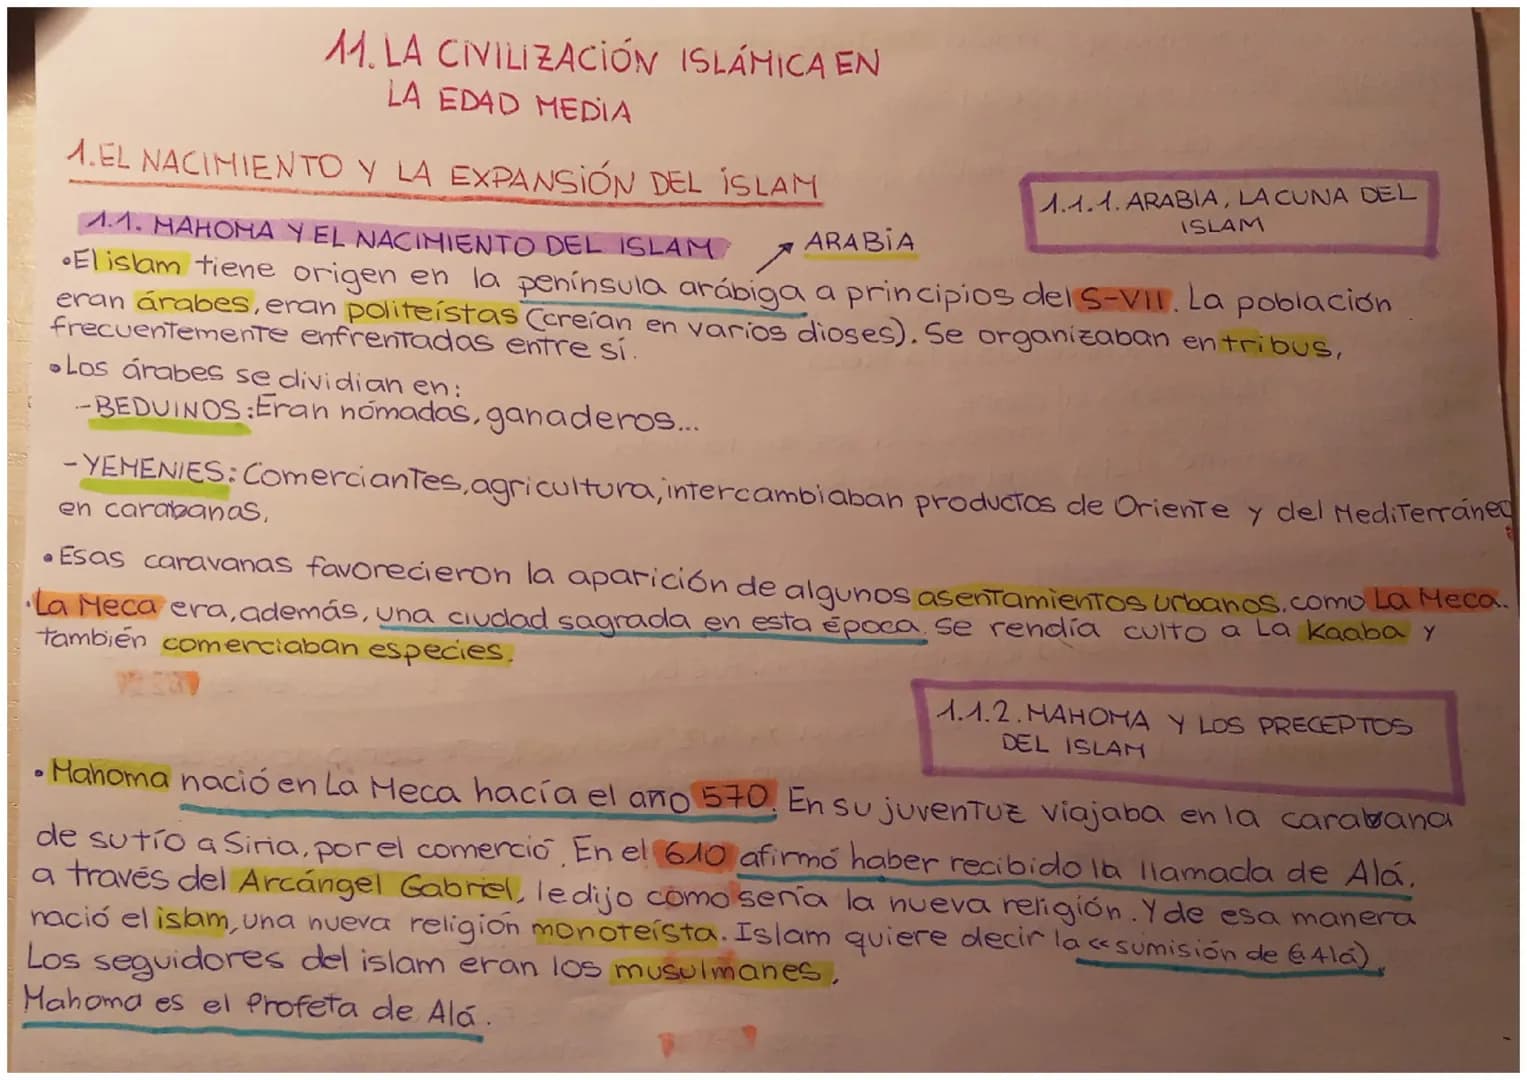 11. LA CIVILIZACIÓN ISLÁMICA EN
LA EDAD MEDIA
1. EL NACIMIENTO Y LA EXPANSIÓN DEL ISLAM
1.1.1. ARABIA, LA CUNA DEL
ISLAM
1.1. MAHOMA Y EL NACIMIENTO DEL ISLAM
ARABIA
•El islam tiene origen en la península arábiga a principios del S-VII. La población
eran árabes, eran politeístas (creían en varios dioses). Se organizaban en tribus,
frecuentemente enfrentadas entre sí.
•Los árabes se dividian en:
-BEDUINOS: Eran nómadas, ganaderos...
-YEMENIES: Comerciantes, agricultura, intercambiaban productos de Oriente y del Mediterráneo
en carabanas,
•Esas caravanas favorecieron la aparición de algunos asentamientos urbanos, como La Meca.
•La Meca era, además, una ciudad sagrada en esta época. Se rendía culto a La Kaaba y
también comerciaban especies.
1.1.2. MAHOMA Y LOS PRECEPTOS
DEL ISLAM
•Mahoma nació en La Meca hacía el año 570. En su juventuz viajaba en la caravana
de su tío a Siria, por el comercio. En el 610 afirmó haber recibido la llamada de Alá.
a través del Arcángel Gabriel, le dijo como sería la nueva religión. Y de esa manera
nació el islam, una nueva religión monoteísta. Islam quiere decir la «sumisión de Alá)
Los seguidores del islam eran los musulmanes,
Mahoma es el Profeta de Alá.